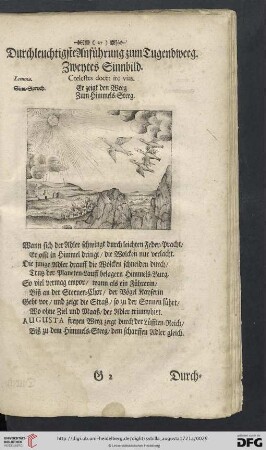 Durchleuchtigste Anführung zum Tugendweeg.
Zweytes Sinnbild.
Lemma.
Coelestes docet ire vias.
Sinn-Spruch.
Er zeigt den Weeg
Zum Himmels-Steeg.
Wann sich der Adler schwingt durch leichten Feder-Pracht/
Er offt in Himmel dringt/ die Wolcken nur verlacht.
Die junge Adler drauff die Wolcken schneiden durch/
Trutz der Planeten-Lauff belagern Himmels-Burg.
So viel vermag empor/ wann als ein Führerin/
Biß an der Sternen-Chor/ der Vögel Kayserin
Geht vor/ und zeigt die Straß/ so zu der Sonnen führt/
Wo ohne Ziel und Maaß/ der Adler triumphirt.
AUGUSTA freyen Weeg zeigt durch der Lüfften-Reich/
Biß zu dem Himmels-Steeg/ dem scharffen Adler gleich.
G 2
Durch-